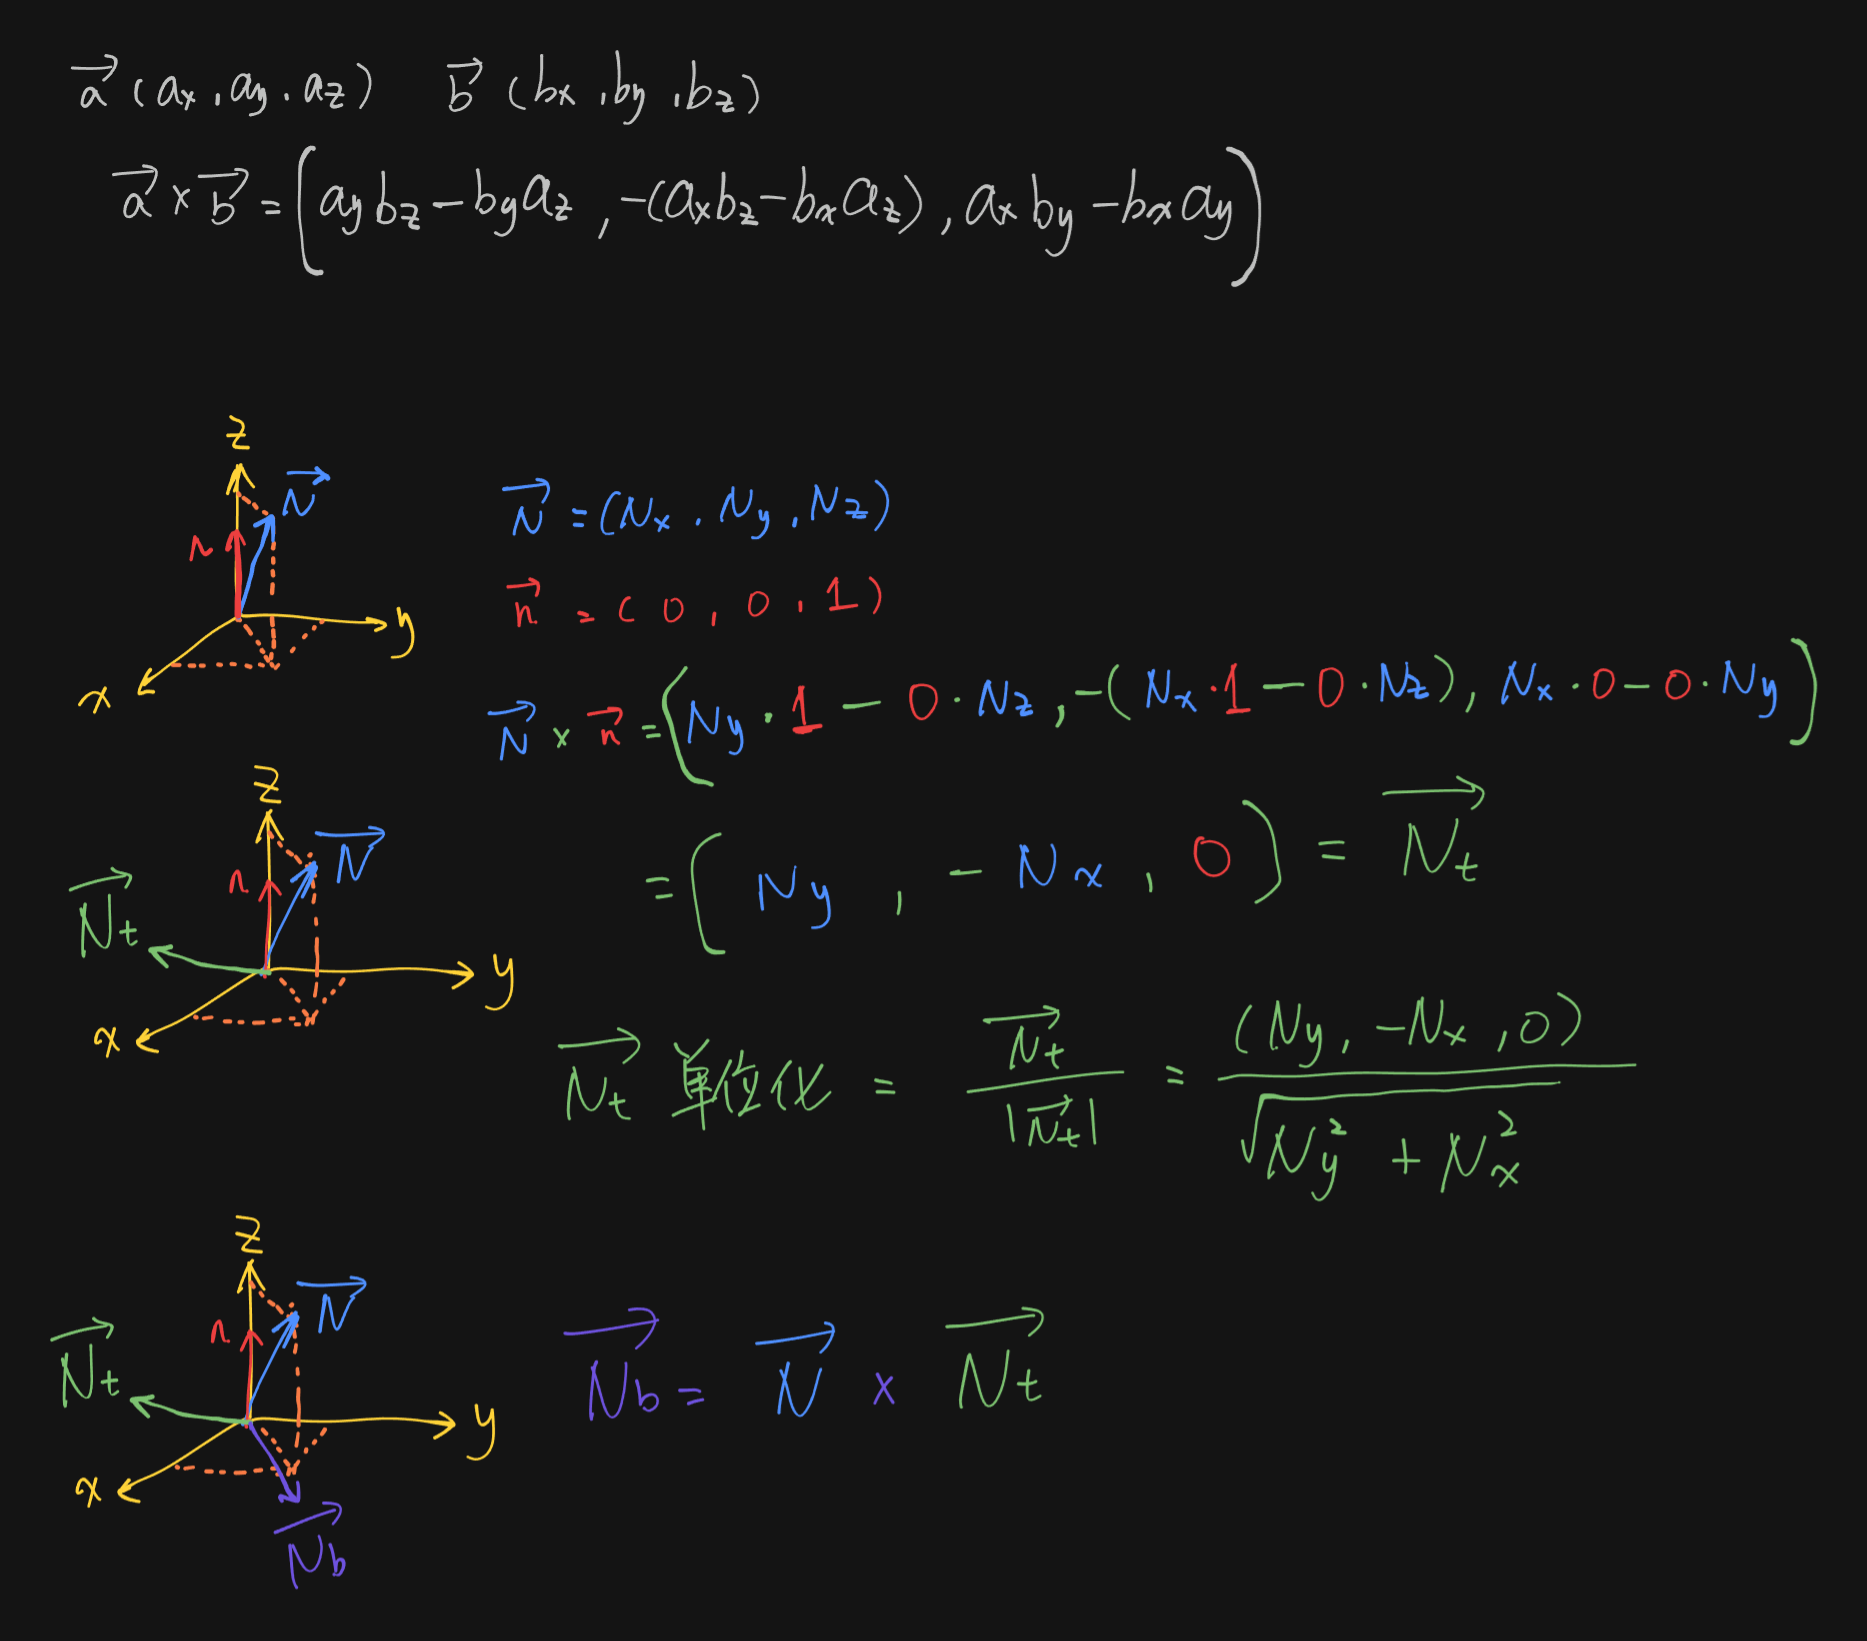 a⃗ (ax, ay, az)   b⃗ (bx, by, bz)
a⃗ × b⃗ = [aybz − byaz, −(axbz − bxaz), axby − bxay]
z
N⃗
n
y
x
N⃗ = (Nx, Ny, Nz)
n⃗ = (0, 0, 1)
N⃗ × n⃗ = (Ny · 1 − 0 · Nz, −(Nx · 1 − 0 · Nz), Nx · 0 − 0 · Ny)
= (Ny, − Nx, 0) = N⃗t
z
N⃗
n
N⃗t
y
x
N⃗t 单位化 = N⃗t / |N⃗t| = (Ny, −Nx, 0) / √(Ny² + Nx²)
z
N⃗
n
N⃗t
y
x
N⃗b
N⃗b = N⃗ × N⃗t